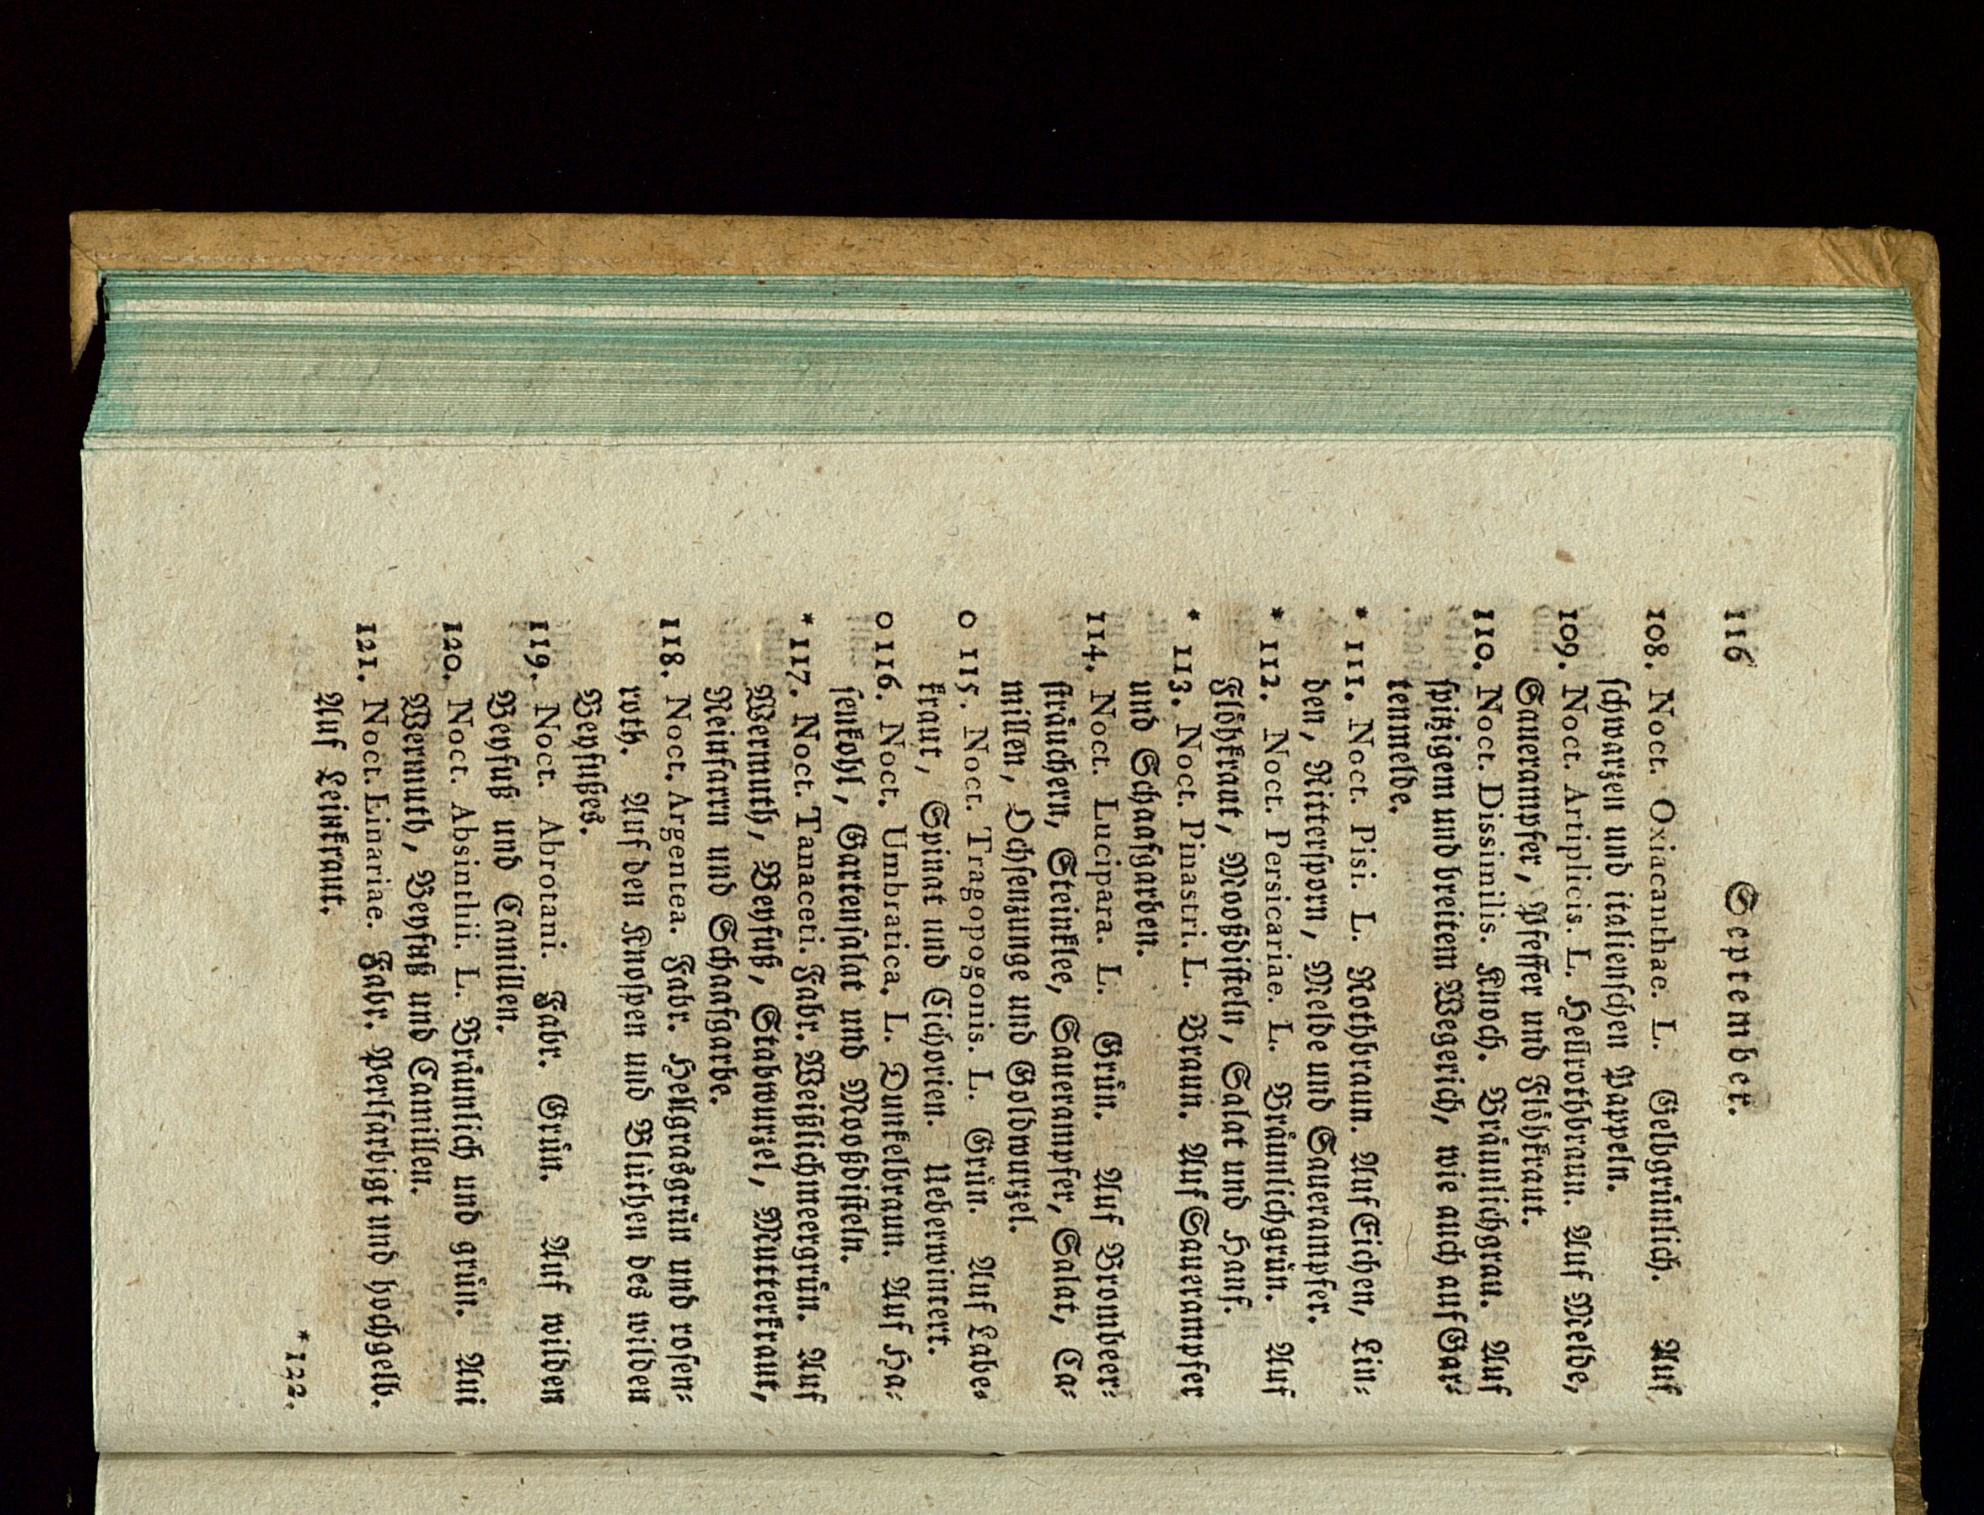 116 September.
108. Noct. Oxiacanthae. L. Gelbgrünlich. Auf
schwarzen und italienschen Pappeln.
109. Noct. Artiplicis. L. Hellrothbraun. Auf Melde,
Sauerampfer, Pfeffer und Flöhkraut.
110. Noct. Dissimilis. Knoch. Bräunlichgrau. Auf
spitzigem und breitem Wegerich, wie auch auf Gar⸗
tenmelde.
* 111. Noct. Pisi. L. Rothbraun. Auf Eichen, Lin⸗
den, Rittersporn, Melde und Sauerampfer.
* 112. Noct. Persicariae. L. Bräunlichgrün. Auf
Flöhkraut, Moosdisteln, Salat und Hanf.
* 113. Noct. Pinastri. L. Braun. Auf Sauerampfer
und Schaafgarben.
114. Noct. Lucipara. L. Grün. Auf Brombeer⸗
sträuchern, Steinklee, Sauerampfer, Salat, Ca⸗
millen, Ochsenzunge und Goldwurzel.
o 115. Noct. Tragopogonis. L. Grün. Auf Labe⸗
kraut, Spinat und Cichorien. Ueberwintert.
o 116. Noct. Umbratica. L. Dunkelbraun. Auf Ha⸗
senkohl, Gartensalat und Moosdisteln.
* 117. Noct. Tanaceti. Fabr. Weißlichmeergrün. Auf
Wermuth, Beyfuß, Stabwurzel, Mutterkraut,
Reinfarrn und Schaafgarbe.
118. Noct. Argentea. Fabr. Hellgrasgrün und rosen⸗
roth. Auf den Knospen und Blüthen des wilden
Beyfußes.
119. Noct. Abrotani. Fabr. Grün. Auf wilden
Beyfuß und Camillen.
120. Noct. Absinthii. L. Bräunlich und grün. Aui
Wermuth, Beyfuß und Camillen.
121. Noct. Linariae. Fabr. Perlfarbigt und hochgelb.
Auf Leinkraut.
* 122.